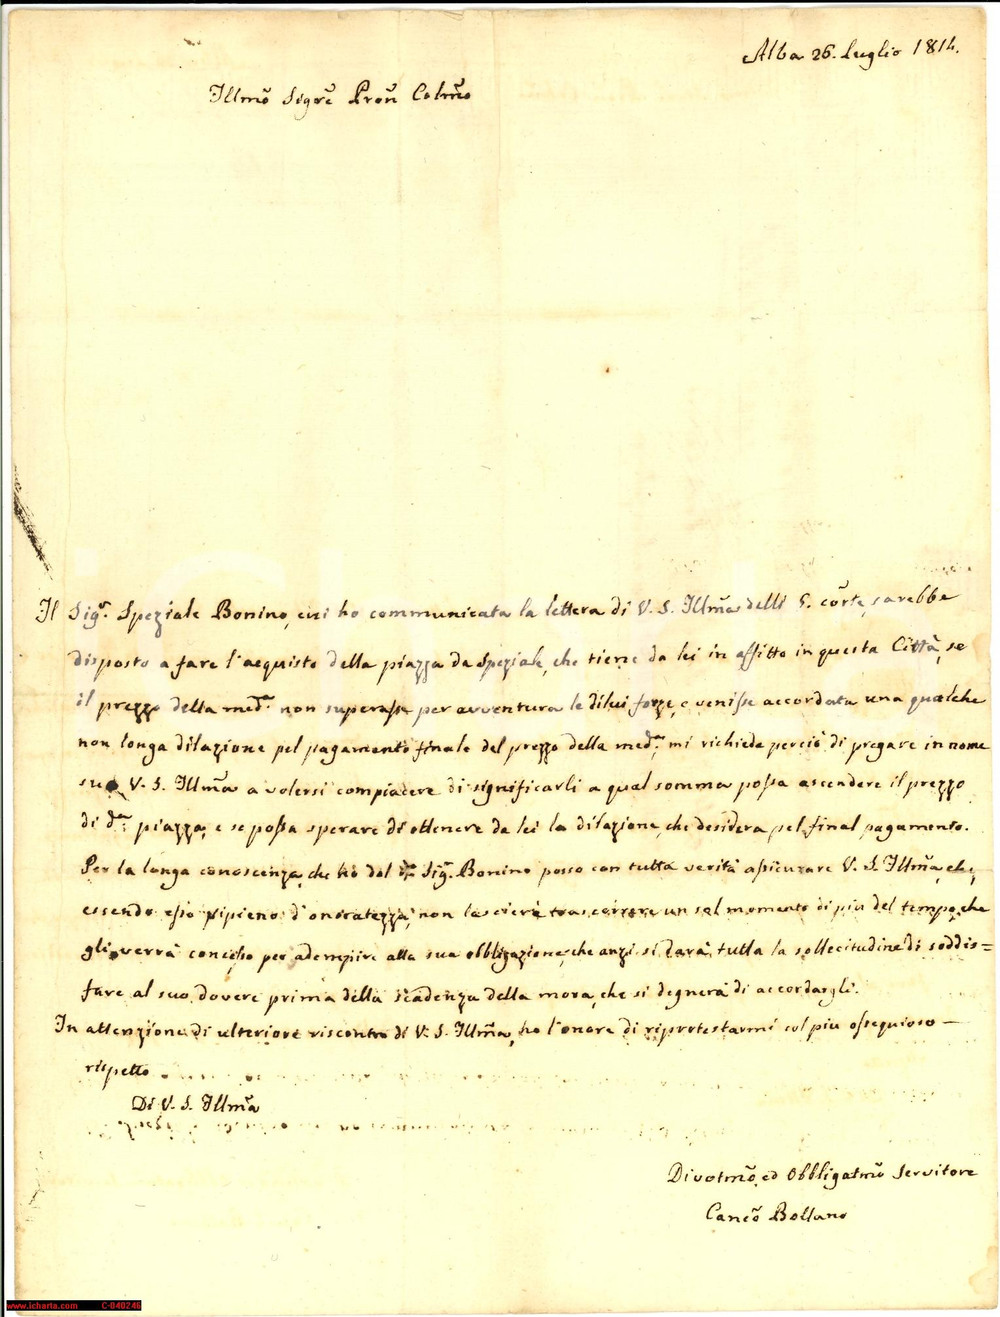 Alba 26. Luglio 1814.
Illmo Sigre Pron Colmo
Il Sigr. Speziale Bonino, cui ho communicata la lettera di V. S. Illma delli 5. corte, sarebbe
disposto a fare l'acquisto della piazza da Speziale, che tiene da lei in affitto in questa Città, se
il prezzo della meda. non superasse per avventura le dilui forze, e venisse accordata una qualche
non longa dilazione pel pagamento finale del prezzo della meda. mi richiede perciò di pregare in nome
suo V. S. Illma a volersi compiacere di significarli a qual somma possa ascendere il prezzo
di da. piazza, e se possa sperare di ottenere da lei la dilazione, che desidera pel final pagamento.
Per la longa conoscenza, che hò dal Sigr. Bonino posso con tutta verità assicurare V. S. Illma, che,
essendo esso ripieno d'onoratezza, non lascierà trascorrere un sol momento di più del tempo, che
gli verrà concesso per adempire alla sua obbligazione, che anzi si darà tutta la sollecitudine di soddis=
fare al suo dovere prima della scadenza della mora, che si degnerà di accordargli.
In attenzione di ulteriore riscontro di V. S. Illma, ho l'onore di riprotestarmi col più ossequioso
rispetto
Di V. S. Illma
Divotmo, ed Obbligatmo Servitore
Canco Bollano
www.icharta.com C-040246